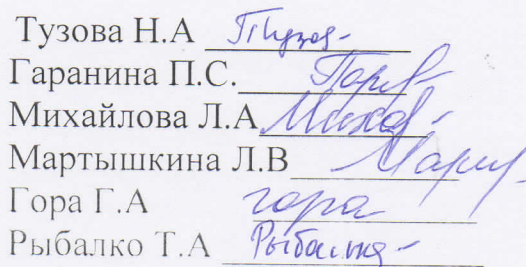 Тузова Н.А Тузов-
Гаранина П.С. Гор
Михайлова Л.А Михай-
Мартышкина Л.В Март-
Гора Г.А гора
Рыбалко Т.А Рыбалко-